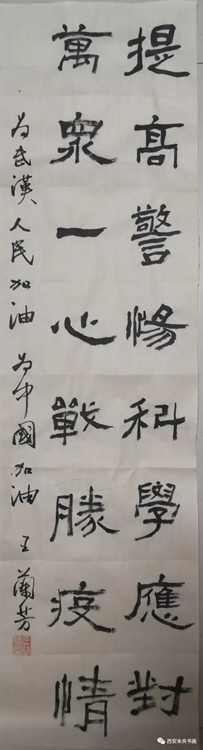 提高警惕科學應對
萬眾一心戰勝疫情
為武漢人民加油 為中國加油 王蘭芳
西安未央书画